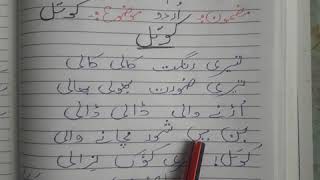 مضمون: اُردو موضوع: کوئل
کوئل
تیری رنگت کالی کالی
تیری صورت بھولی بھالی
اُڑنے والی ڈالی ڈالی
بن میں شور مچانے والی
کوئل! تیری کُوک نرالی